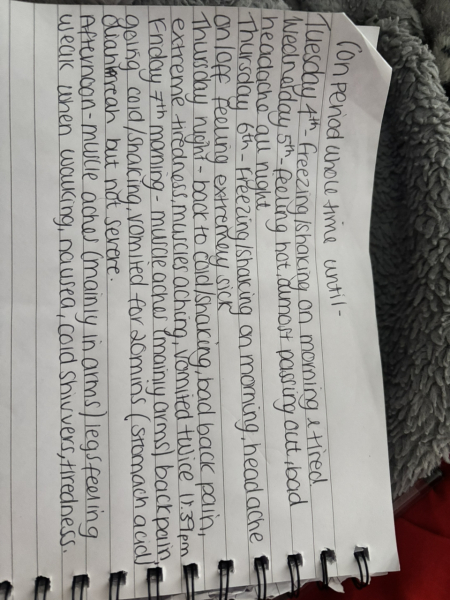 (on period whole time until -
Tuesday 4th - freezing/shaking on morning & tired
Wednesday 5th - feeling hot, almost passing out, bad
headache all night
Thursday 6th - freezing/shaking on morning, headache
on/off feeling extremely sick
Thursday night - back to cold/shaking, bad back pain,
extreme tiredness, muscles aching, vomited twice 11:37pm
Friday 7th morning - muscle aches (mainly arms) back pain,
going cold/shaking, vomited for 20mins (stomach acid)
diahrreah but not severe.
Afternoon - muscle aches (mainly in arms) legs feeling
weak when walking, nausea, cold shivvers, tiredness.